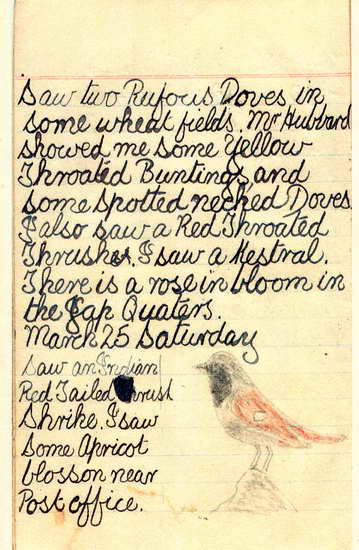 Saw two Rufous Doves in
some wheat fields. Mr Hubbard
showed me some Yellow
Throated Buntings and
some spotted necked Doves.
I also saw a Red Throated
Thrush. I saw a Kestral.
There is a rose in bloom in
the Jap Quaters.
March 25 Saturday
saw an Indian
Red Tailed
Shrike. I saw
some Apricot
blosson near
Post office.